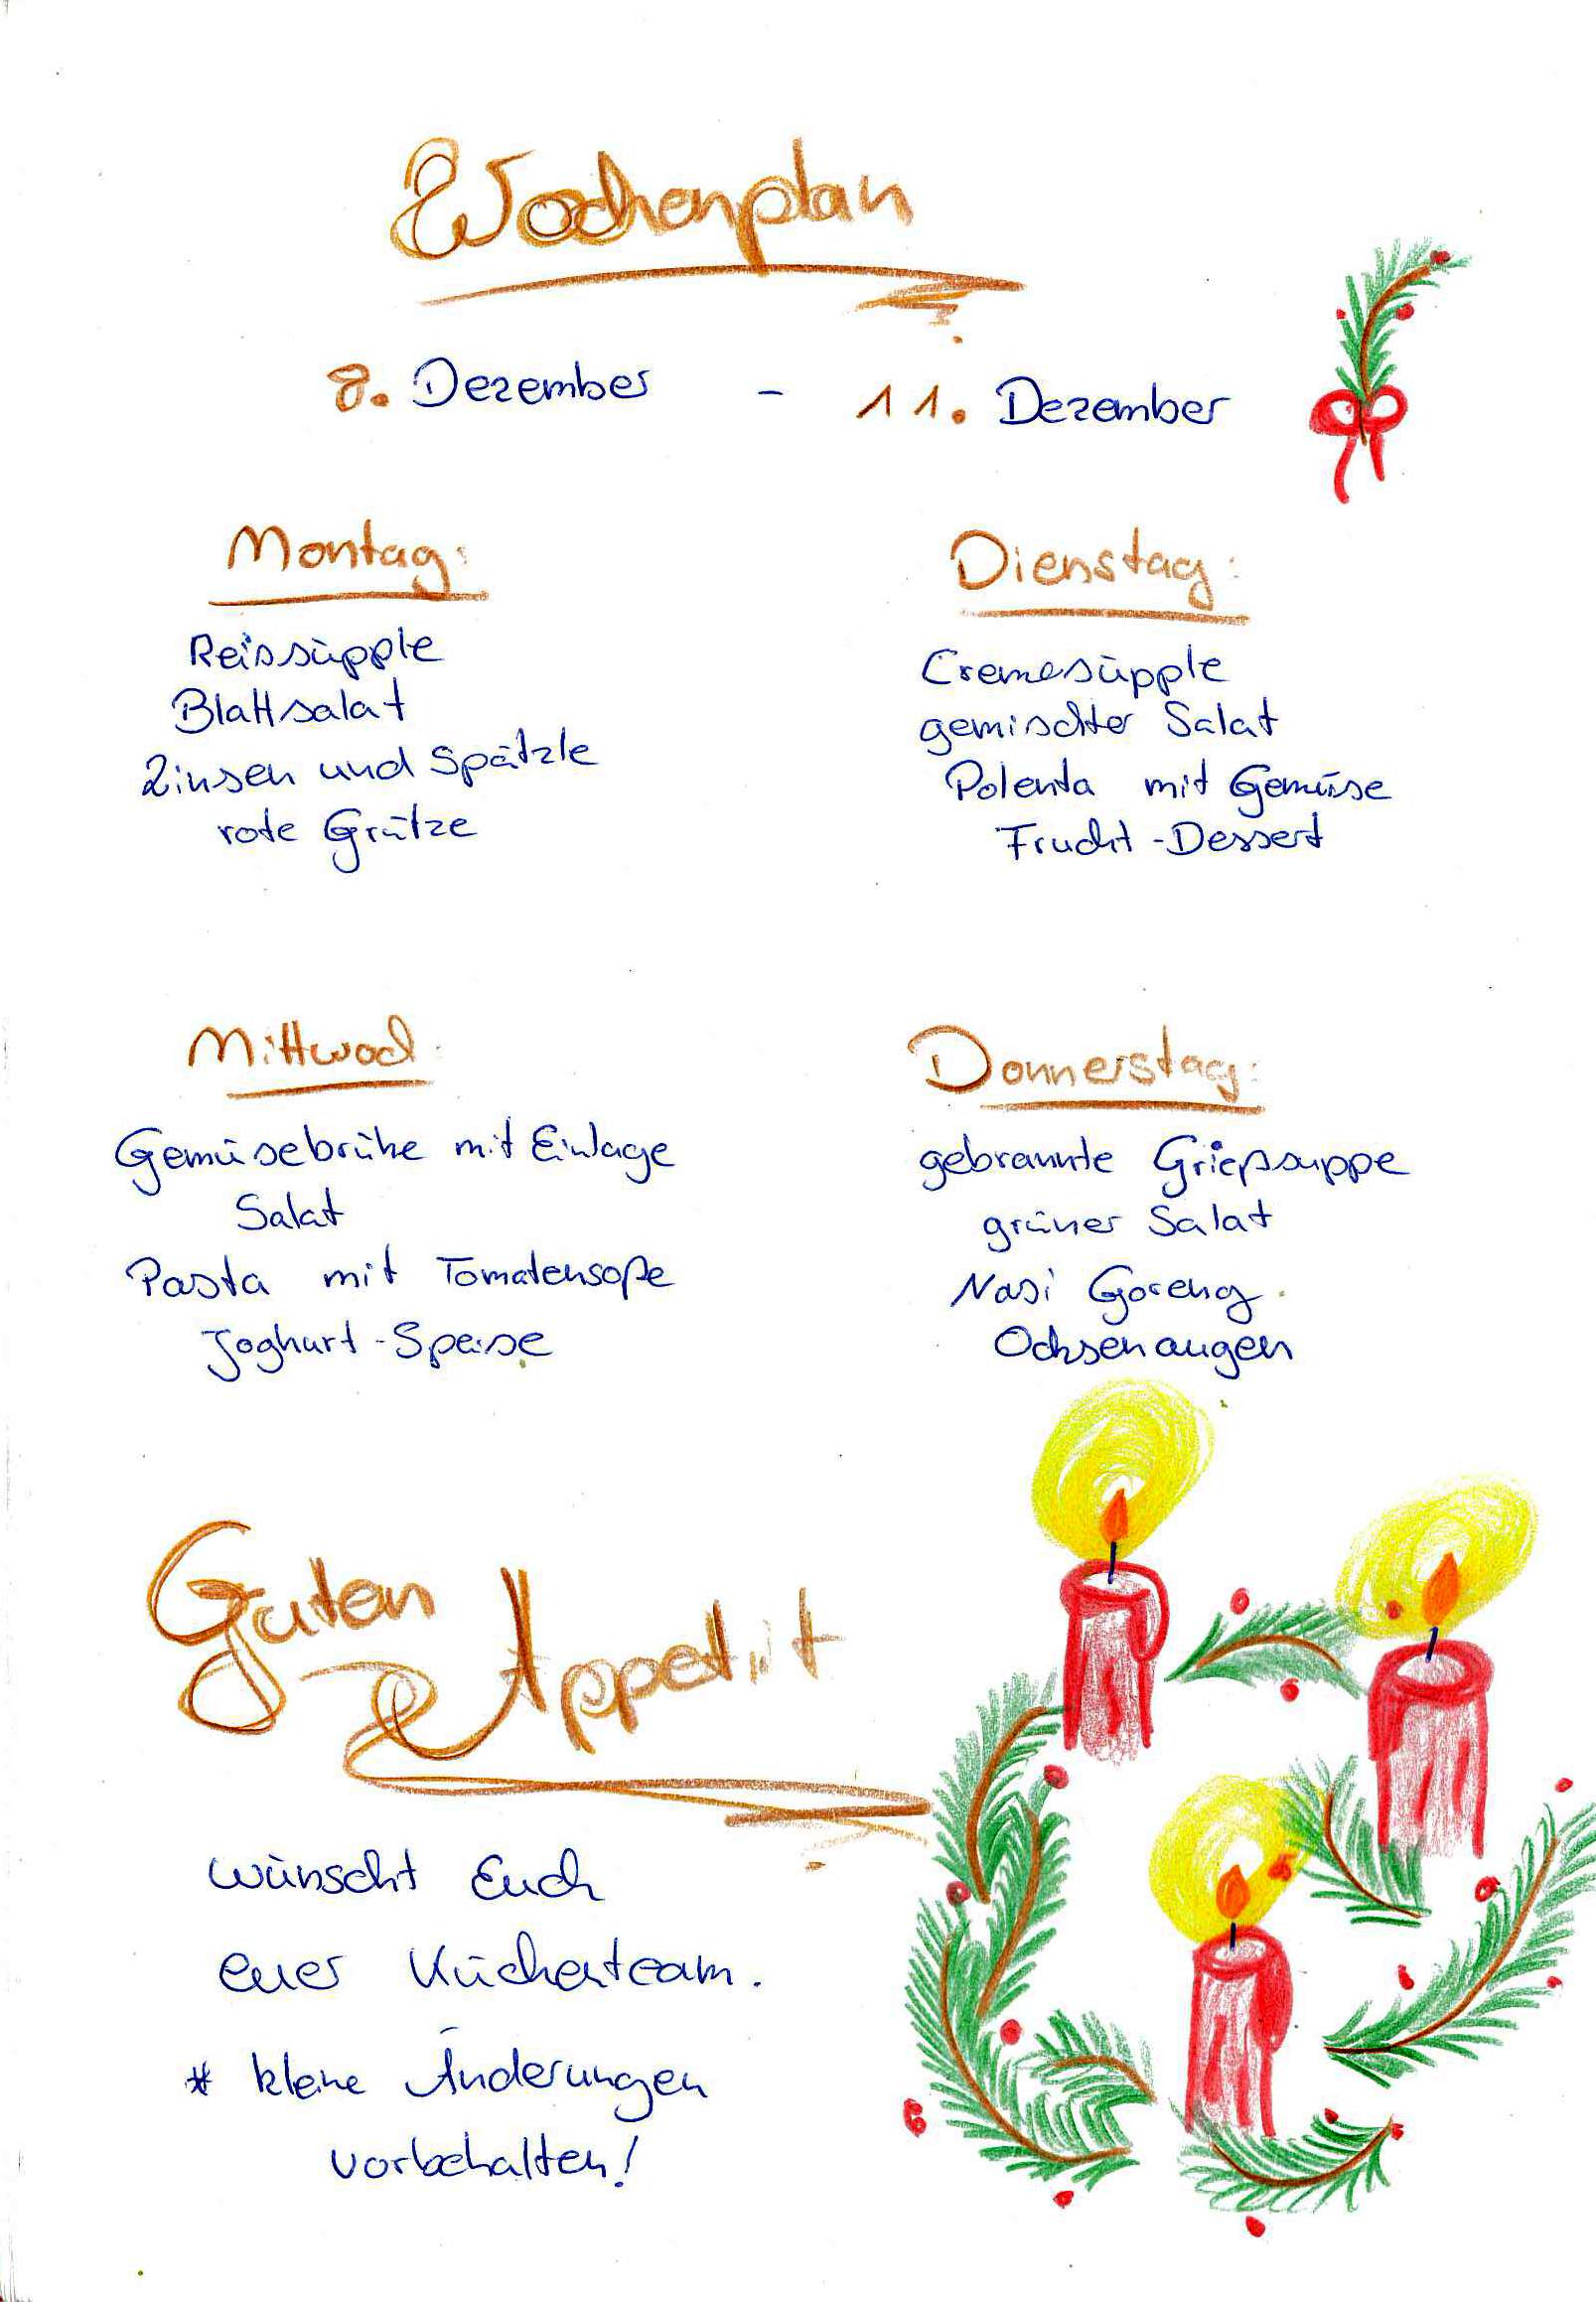 Wochenplan
8. Dezember - 11. Dezember
Montag:
Reissüpple
Blattsalat
Linsen und Spätzle
rote Grütze
Dienstag:
Cremesüpple
gemischter Salat
Polenta mit Gemüse
Frucht-Dessert
Mittwoch:
Gemüsebrühe mit Einlage
Salat
Pasta mit Tomatensoße
Joghurt-Speise
Donnerstag:
gebrannte Grießsuppe
grüner Salat
Nasi Goreng
Ochsenaugen
Guten
Appetit
wünscht Euch
euer Küchenteam.
* kleine Änderungen
vorbehalten!